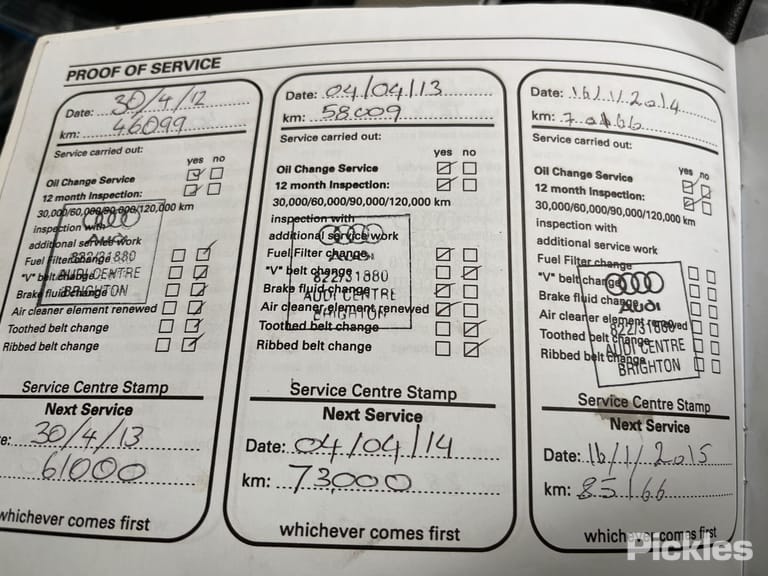 PROOF OF SERVICE
Date: 30/4/12
km: 46099
Service carried out:
yes no
Oil Change Service
12 month Inspection:
30,000/60,000/90,000/120,000 km
inspection with
additional service work
Fuel Filter change
"V" belt change
Brake fluid change
Air cleaner element renewed
Toothed belt change
Ribbed belt change
Audi
822/31880
AUDI CENTRE
BRIGHTON
Service Centre Stamp
Next Service
30/4/13
61000
whichever comes first
Date: 04/04/13
km: 58009
Service carried out:
yes no
Oil Change Service
12 month Inspection:
30,000/60,000/90,000/120,000 km
inspection with
additional service work
Fuel Filter change
"V" belt change
Brake fluid change
Air cleaner element renewed
Toothed belt change
Ribbed belt change
822/31880
AUDI CENTRE
BRIGHTON
Service Centre Stamp
Next Service
Date: 04/04/14
km: 73,000
whichever comes first
Date: 16/1/2014
km: 70166
Service carried out:
yes no
Oil Change Service
12 month Inspection:
30,000/60,000/90,000/120,000 km
inspection with
additional service work
Fuel Filter change
"V" belt change
Brake fluid change
Air cleaner element renewed
Toothed belt change
Ribbed belt change
Audi
822/31880
AUDI CENTRE
BRIGHTON
Service Centre Stamp
Next Service
Date: 16/1/2015
km: 85166
whichever comes first
Pickles